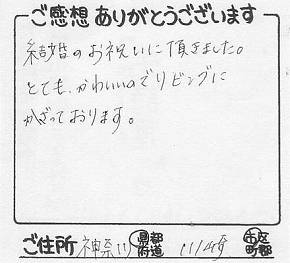 ご感想ありがとうございます
結婚のお祝いに頂きました。
とても、かわいいのでリビングに
かざっております。
ご住所 神奈川 県都府道 川崎 市区町郡